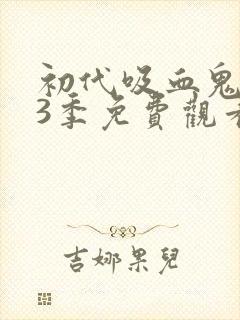 初代吸血鬼
3季免費觀看
吉娜果兒